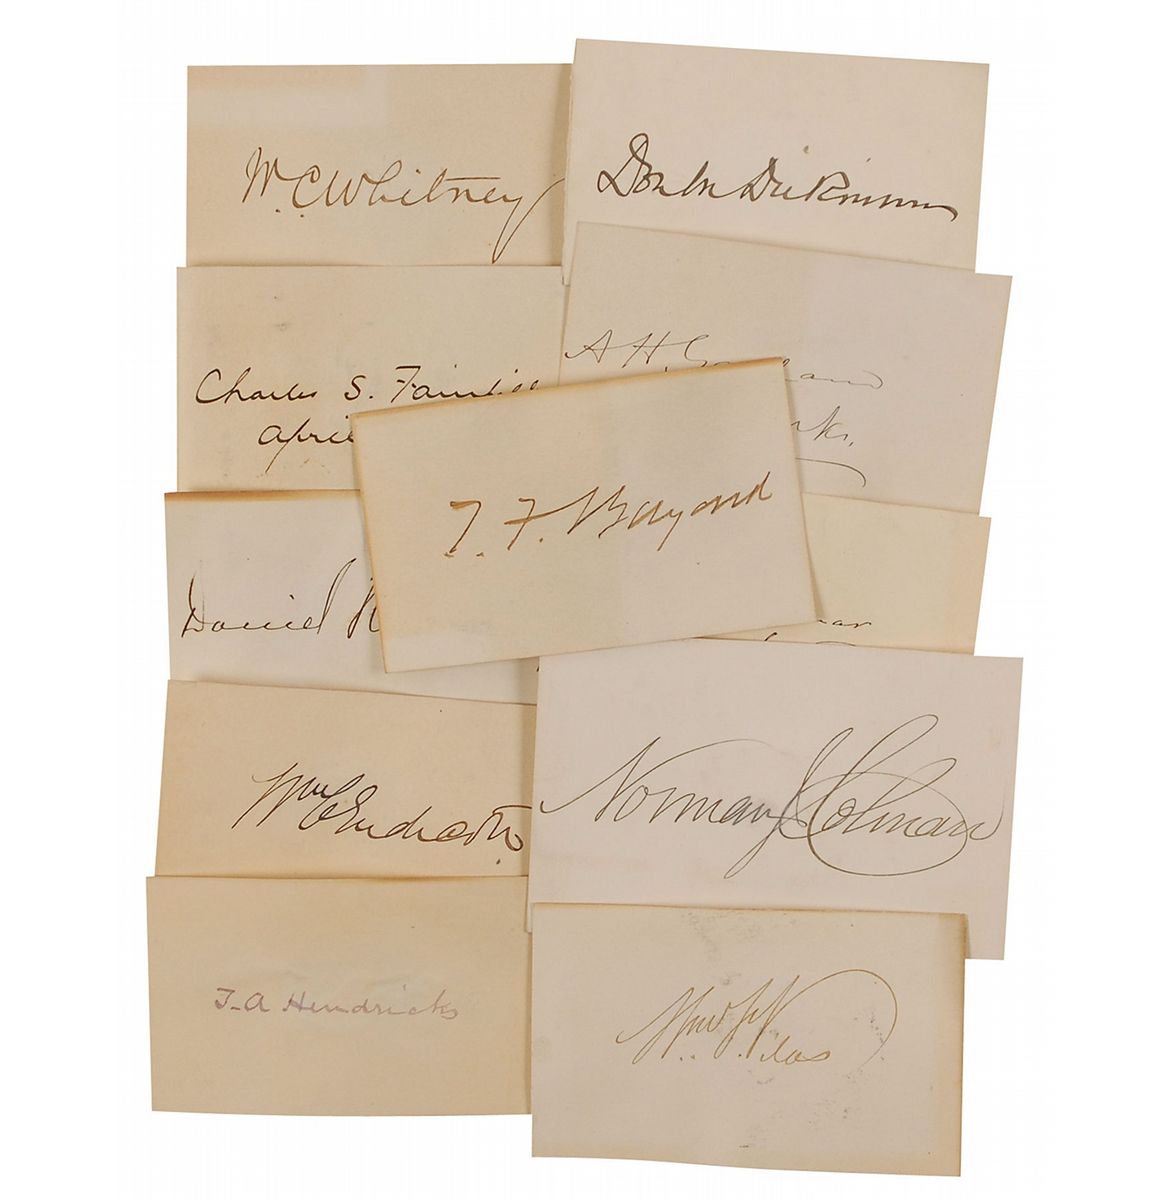 W. C. Whitney
Don M Dickinson
Charles S. Fairchil
April
A. H. Garland
Ark.
T. F. Bayard
Daniel
mar
Wm C Endicott
Norman J Colman
T. A Hendricks
Wm. F. Vilas